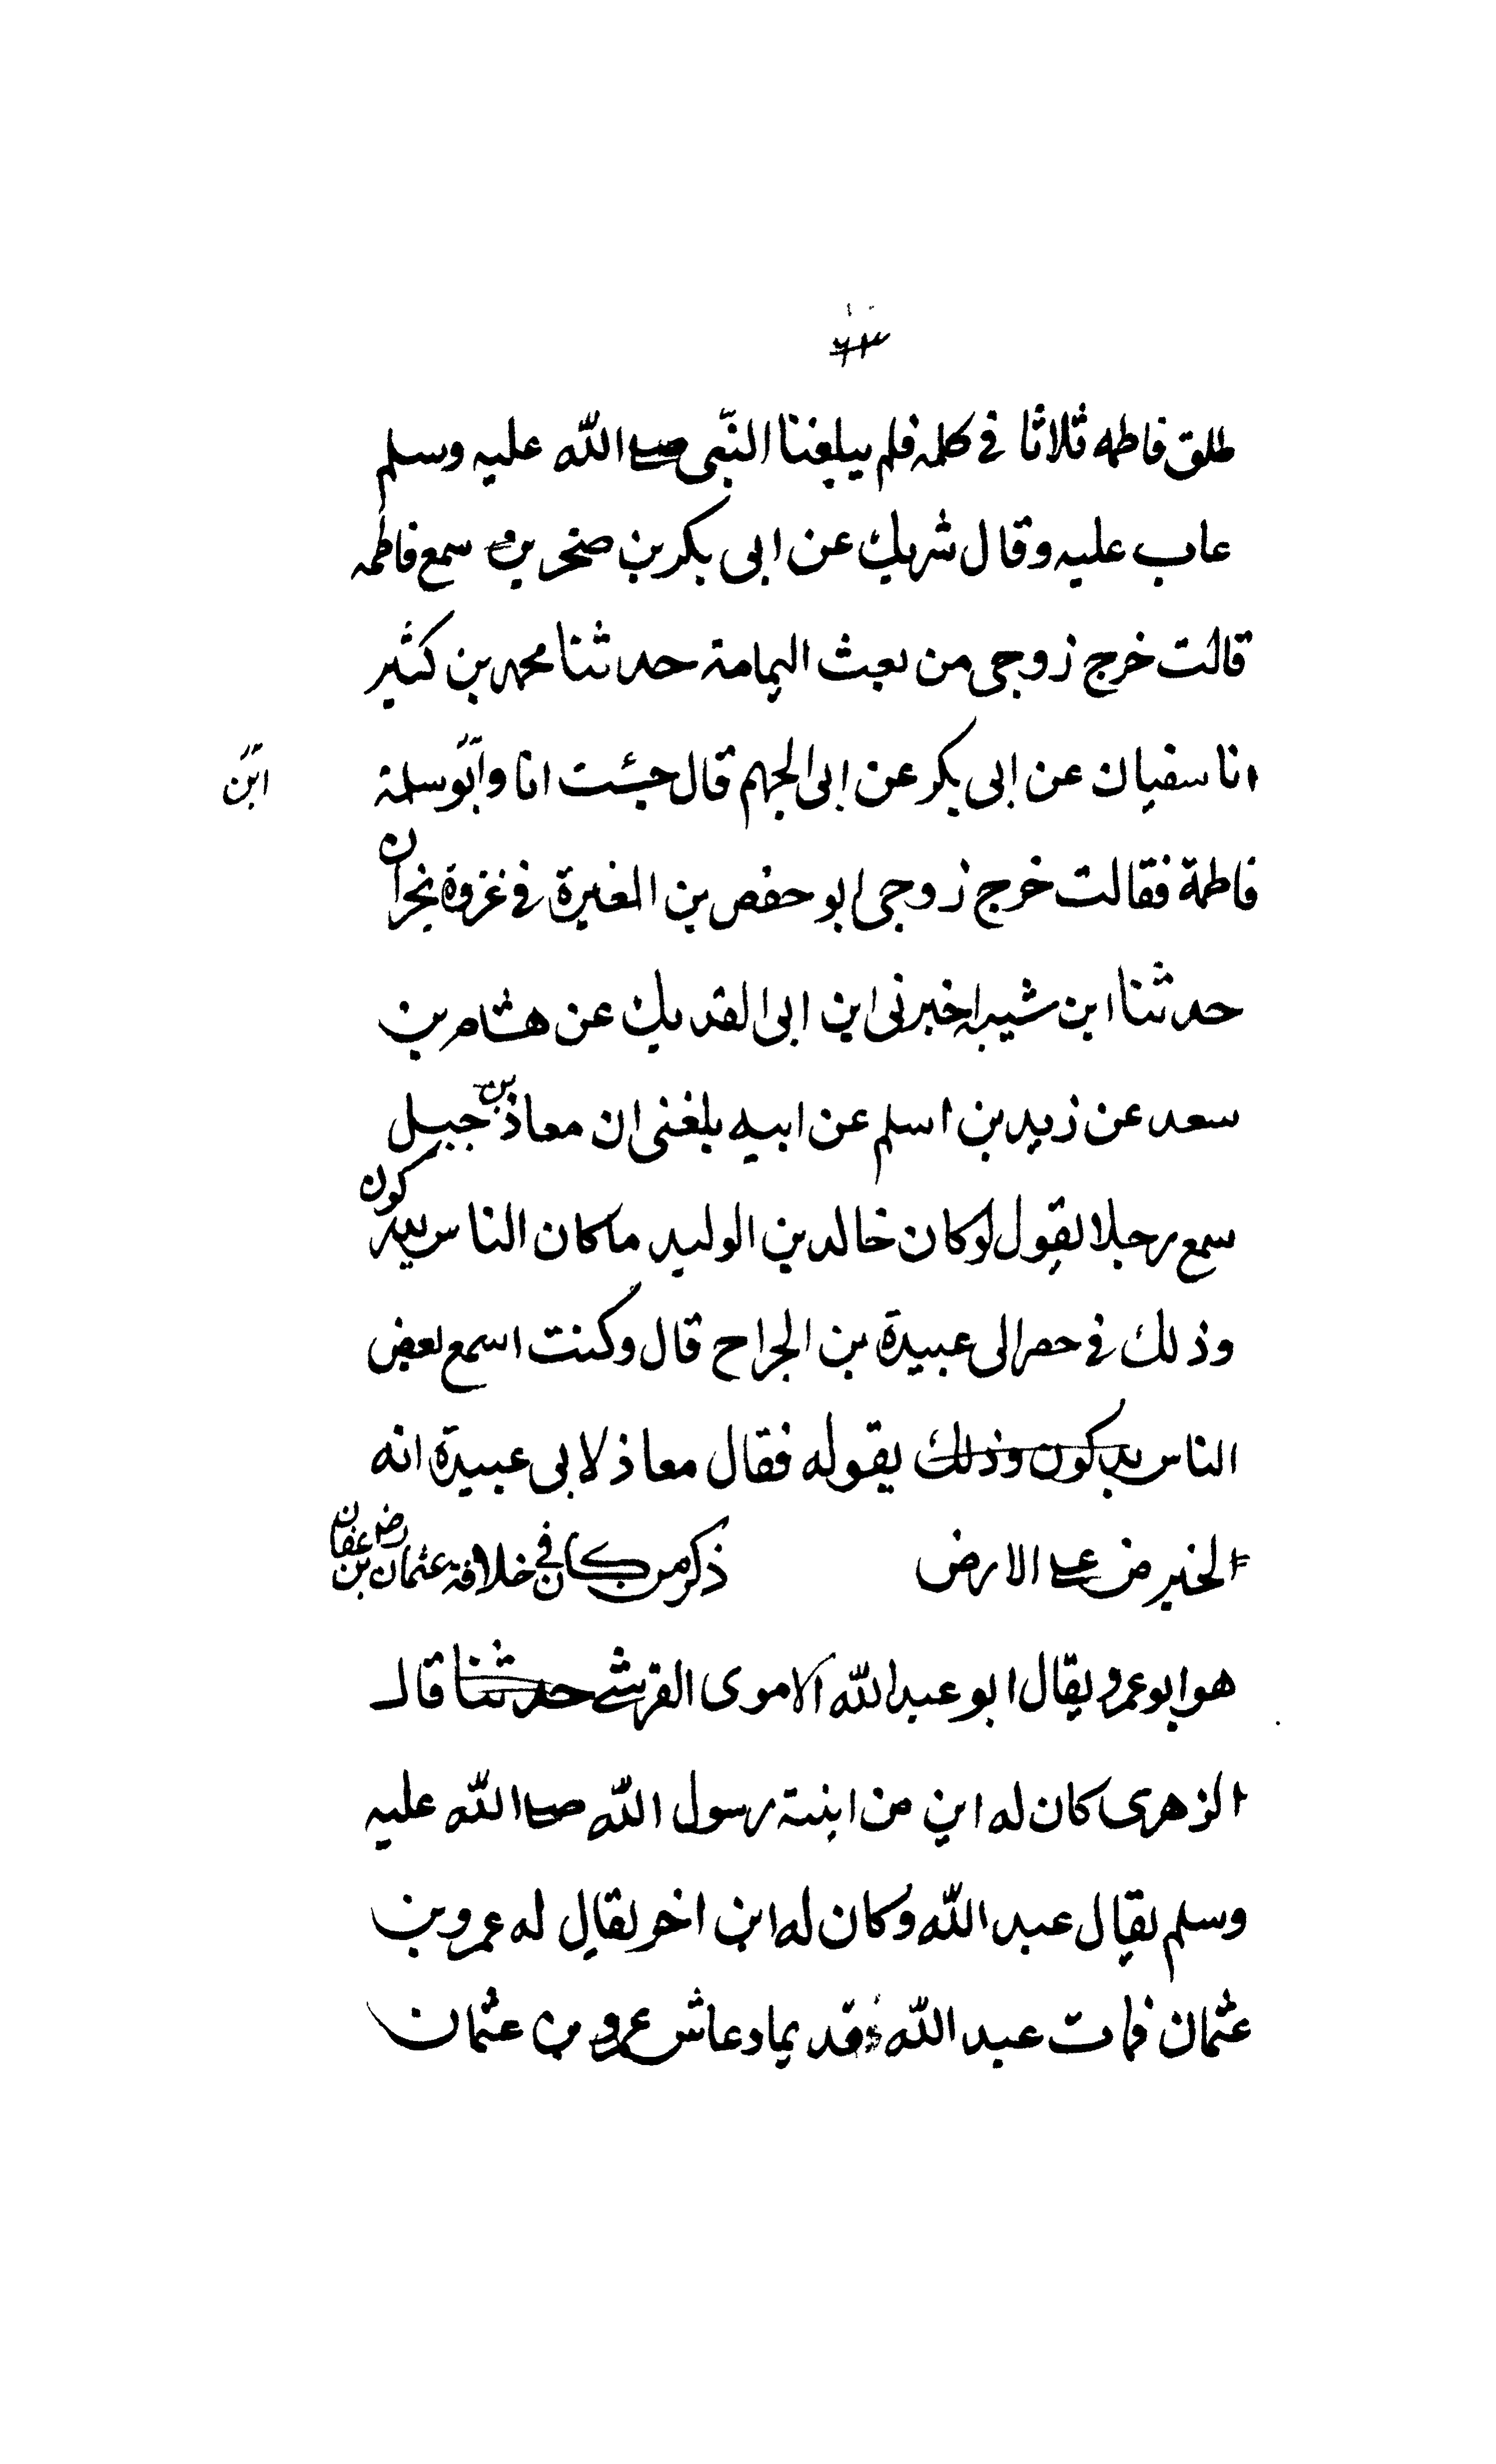 طلق فاطمه ثلاثا فى كلمه فلم يبلغنا النبى صلى الله عليه وسلم
عاب عليه وقال شريك عن ابى بكر بن صخر سمع فاطمه
قالت خرج زوجى من بعث اليمامة حدثنا محمد بن كثير
انا سفيان عن ابى بكر عن ابى الجهم قال جئت انا وابو سلمة
ابن
فاطمة فقالت خرج زوجى ابو حفص بن المغيرة فى غزوة نجران
حدثنا ابن شيبه اخبرنى ابن ابى الفديك عن هشام بن
سعد عن زيد بن اسلم عن ابيه بلغنى ان معاذ بن جبل
سمع رجلا يقول لو كان خالد بن الوليد ما كان الناس يدركون
وذلك فى حصر ابى عبيدة بن الجراح قال وكنت اسمع بعض
الناس يدركون وذلك يقوله فقال معاذ لابى عبيدة انه
لخير من على الارض ذكر من كان فى خلافة عثمان بن عفان رض
هو ابو عمرو يقال ابو عبد الله الاموى القرشى حدثنا قال
الزهرى كان له ابن من ابنة رسول الله صلى الله عليه
وسلم يقال عبد الله وكان له ابن اخر يقال له عمرو بن
عثمان فمات عبد الله قديما وعاش عمرو بن عثمان